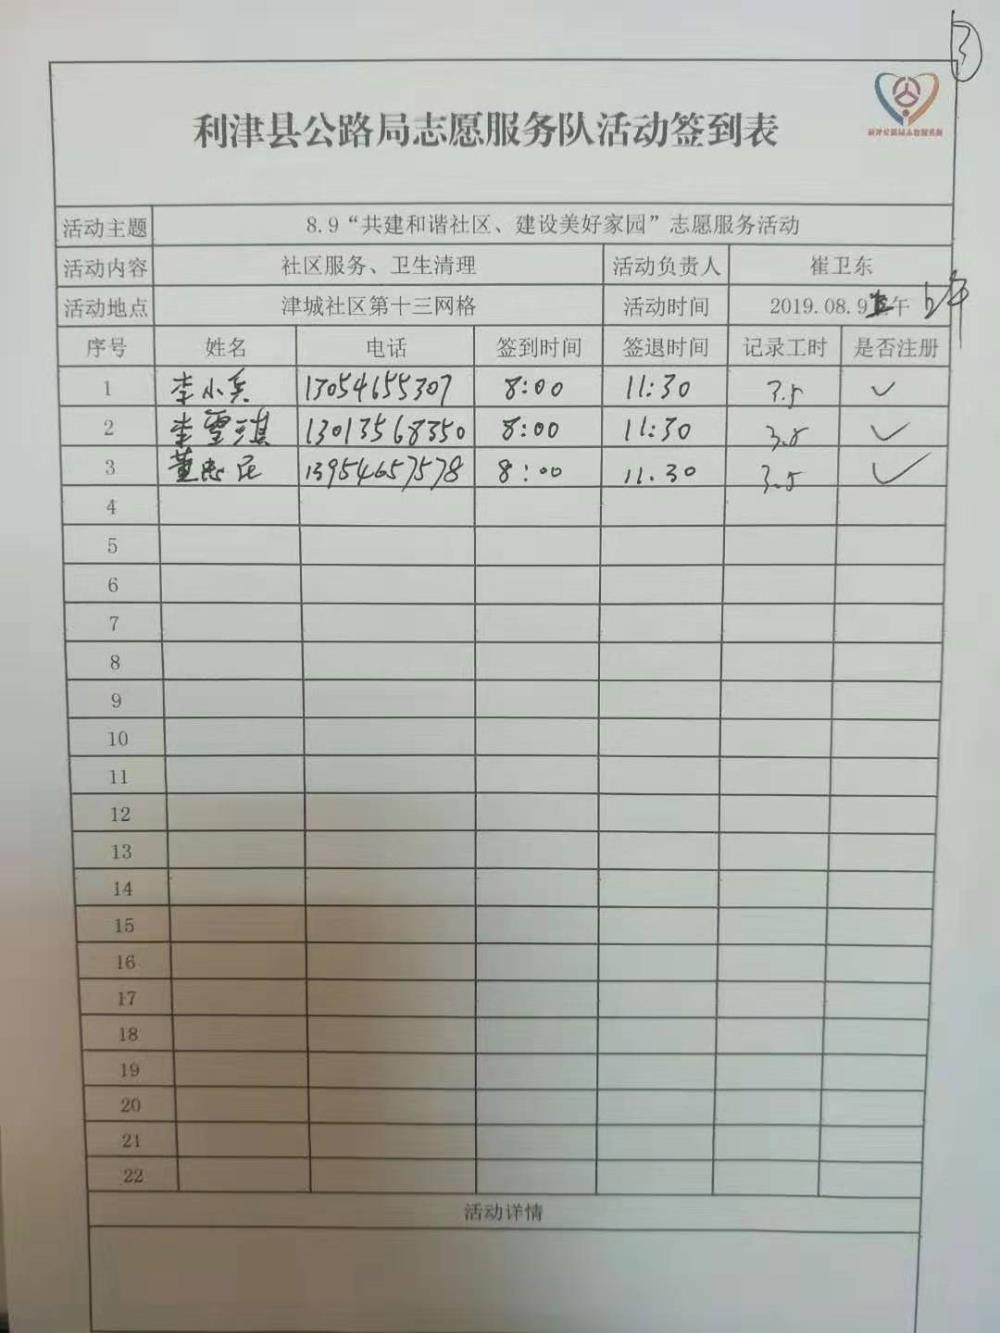 3
利津县公路局志愿服务队活动签到表
活动主题 8.9“共建和谐社区、建设美好家园”志愿服务活动
活动内容 社区服务、卫生清理 活动负责人 崔卫东
活动地点 津城社区第十三网格 活动时间 2019.08.9 午
序号 姓名 电话 签到时间 签退时间 记录工时 是否注册
1 李小兵 13054655307 8:00 11:30 3.5 ✓
2 李雪琪 13013568350 8:00 11:30 3.5 ✓
3 董志民 13954657578 8:00 11.30 3.5 ✓
4
5
6
7
8
9
10
11
12
13
14
15
16
17
18
19
20
21
22
活动详情